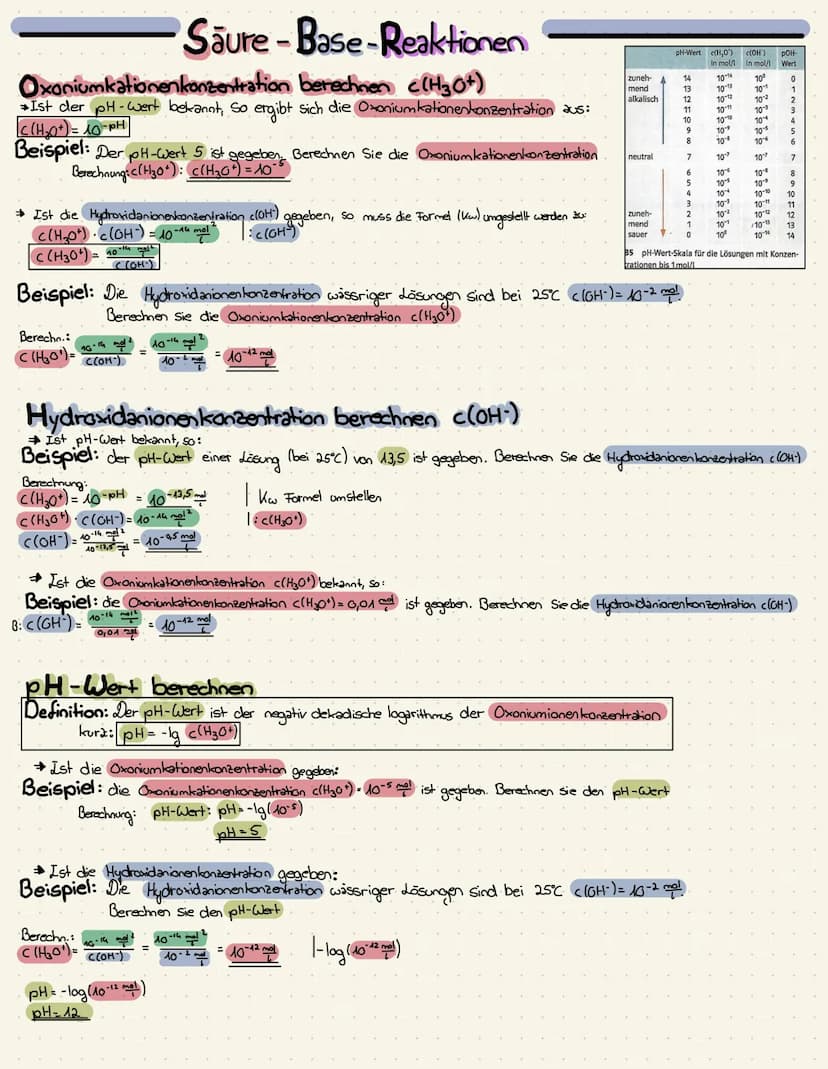 Säure-Base-Reaktionen
Oxoniumkationenkonzentration berechnen c(H₃O⁺)
→ Ist der pH-Wert bekannt, so ergibt sich die Oxoniumkationenkonzentration aus:
c(H₃O⁺) = 10^-pH
Beispiel: Der pH-Wert 5 ist gegeben. Berechnen Sie die Oxoniumkationenkonzentration
Berechnung: c(H₃O⁺): c(H₃O⁺) = 10⁻⁵
→ Ist die Hydroxidanionenkonzentration c(OH⁻) gegeben, so muss die Formel (Kw) umgestellt werden zu:
c(H₃O⁺) · c(OH⁻) = 10⁻¹⁴ mol²/l | : c(OH⁻)
c(H₃O⁺) = 10⁻¹⁴ mol²/l / c(OH⁻)
pH-Wert c(H₃O⁺) in mol/l c(OH⁻) in mol/l pOH-Wert
zuneh- 14 10⁻¹⁴ 10⁰ 0
mend 13 10⁻¹³ 10⁻¹ 1
alkalisch 12 10⁻¹² 10⁻² 2
11 10⁻¹¹ 10⁻³ 3
10 10⁻¹⁰ 10⁻⁴ 4
9 10⁻⁹ 10⁻⁵ 5
8 10⁻⁸ 10⁻⁶ 6
neutral 7 10⁻⁷ 10⁻⁷ 7
6 10⁻⁶ 10⁻⁸ 8
5 10⁻⁵ 10⁻⁹ 9
4 10⁻⁴ 10⁻¹⁰ 10
3 10⁻³ 10⁻¹¹ 11
zuneh- 2 10⁻² 10⁻¹² 12
mend 1 10⁻¹ 10⁻¹³ 13
sauer 0 10⁰ 10⁻¹⁴ 14
35 pH-Wert-Skala für die Lösungen mit Konzen-
trationen bis 1 mol/l
Beispiel: Die Hydroxidanionenkonzentration wässriger Lösungen sind bei 25°C c(OH⁻) = 10⁻² mol/l.
Berechnen Sie die Oxoniumkationenkonzentration c(H₃O⁺)
Berechn.:
c(H₃O⁺) = 10⁻¹⁴ mol²/l / c(OH⁻) = 10⁻¹⁴ mol²/l / 10⁻² mol/l = 10⁻¹² mol/l
Hydroxidanionenkonzentration berechnen c(OH⁻)
→ Ist pH-Wert bekannt, so:
Beispiel: der pH-Wert einer Lösung (bei 25°C) von 13,5 ist gegeben. Berechnen Sie die Hydroxidanionenkonzentration c(OH⁻)
Berechnung:
c(H₃O⁺) = 10^-pH = 10^-13,5 mol/l | Kw Formel umstellen
c(H₃O⁺) · c(OH⁻) = 10⁻¹⁴ mol²/l | : c(H₃O⁺)
c(OH⁻) = 10⁻¹⁴ mol²/l / 10^-13,5 mol/l = 10^-0,5 mol/l
→ Ist die Oxoniumkationenkonzentration c(H₃O⁺) bekannt, so:
Beispiel: die Oxoniumkationenkonzentration c(H₃O⁺) = 0,01 mol/l ist gegeben. Berechnen Sie die Hydroxidanionenkonzentration c(OH⁻)
B: c(OH⁻) = 10⁻¹⁴ mol²/l / 0,01 mol/l = 10⁻¹² mol/l
pH-Wert berechnen
Definition: Der pH-Wert ist der negativ dekadische logarithmus der Oxoniumionenkonzentration
kurz: pH = -lg c(H₃O⁺)
→ Ist die Oxoniumkationenkonzentration gegeben:
Beispiel: die Oxoniumkationenkonzentration c(H₃O⁺) = 10⁻⁵ mol/l ist gegeben. Berechnen Sie den pH-Wert
Berechnung: pH-Wert: pH = -lg(10⁻⁵)
pH = 5
→ Ist die Hydroxidanionenkonzentration gegeben:
Beispiel: Die Hydroxidanionenkonzentration wässriger Lösungen sind bei 25°C c(OH⁻) = 10⁻² mol/l.
Berechnen Sie den pH-Wert
Berechn.:
c(H₃O⁺) = 10⁻¹⁴ mol²/l / c(OH⁻) = 10⁻¹⁴ mol²/l / 10⁻² mol/l = 10⁻¹² mol/l |-log(10⁻¹² mol/l)
pH = -log(10⁻¹² mol/l)
pH = 12